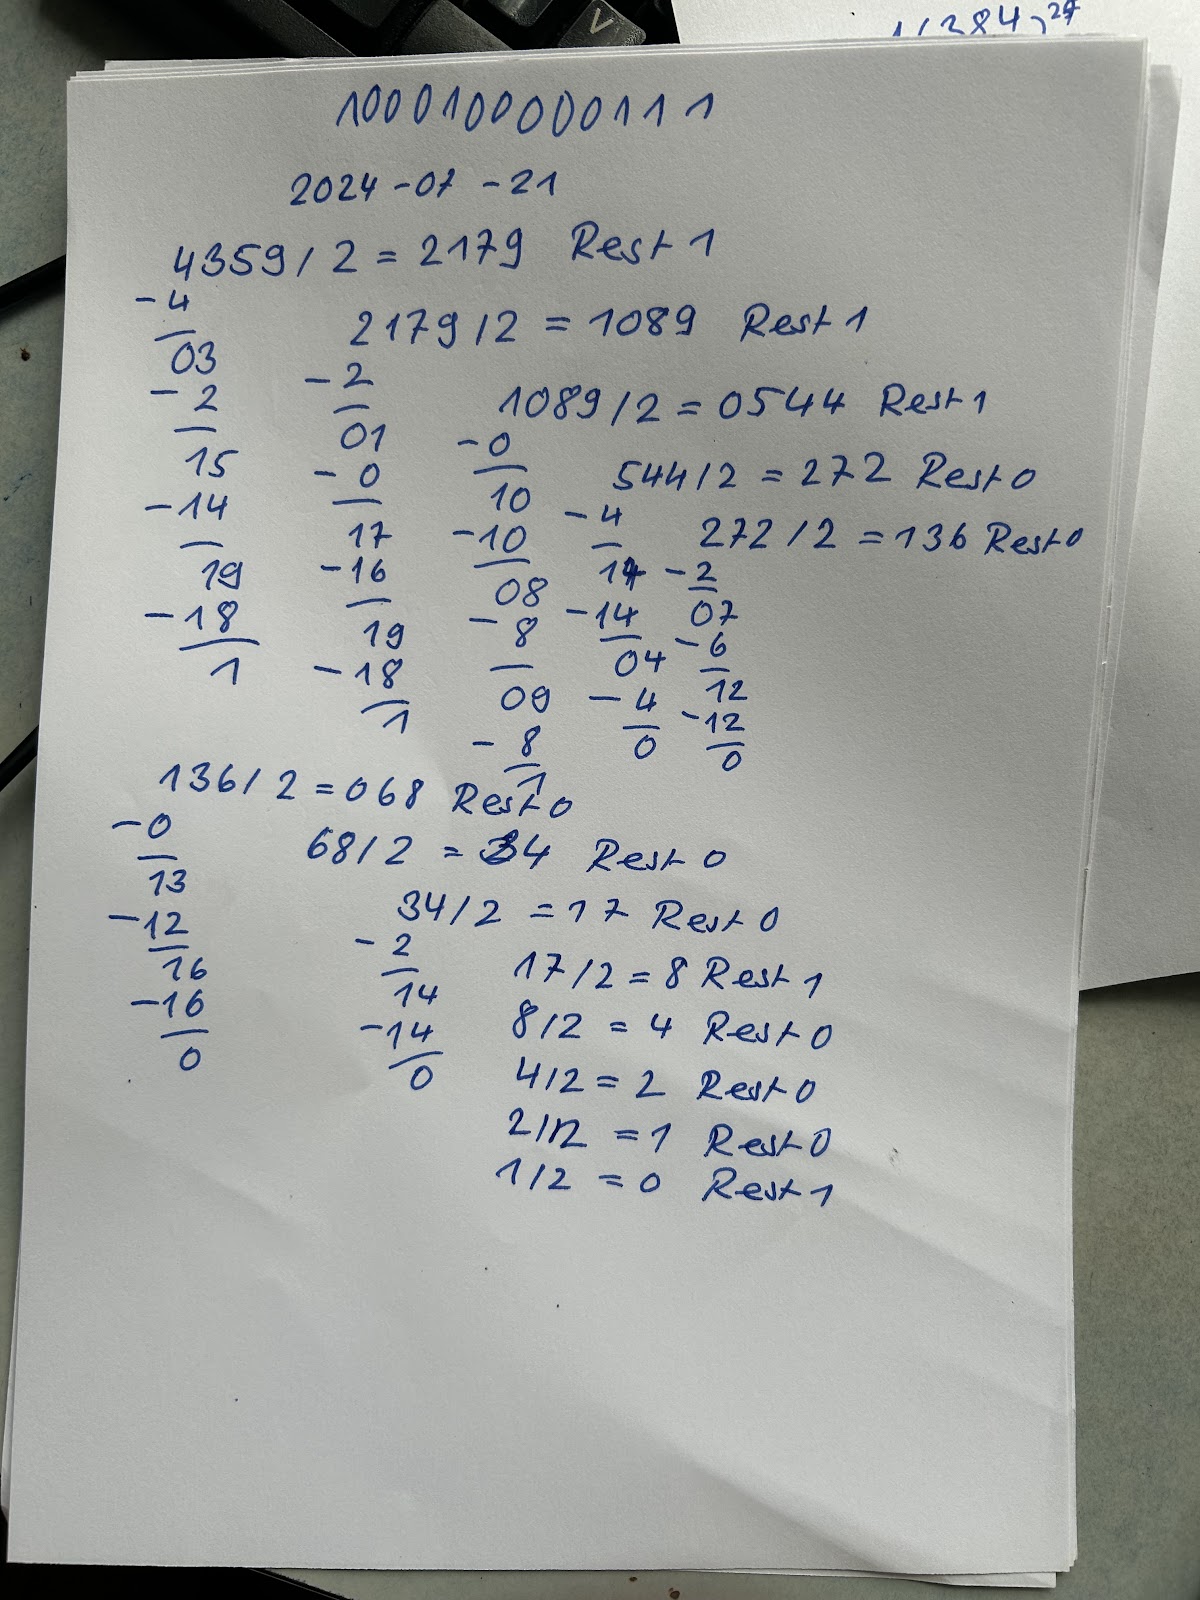 V
1000100000111
2024-07-21
4359/2=2179 Rest 1
-4
03
-2
15
-14
19
-18
1
2179/2=1089 Rest 1
-2
01
-0
17
-16
19
-18
1
1089/2=0544 Rest 1
-0
10
-10
08
-8
09
-8
1
544/2=272 Rest 0
-4
14
-14
04
-4
0
272/2=136 Rest 0
-2
07
-6
12
-12
0
136/2=068 Rest 0
-0
13
-12
16
-16
0
68/2=34 Rest 0
34/2=17 Rest 0
-2
14
-14
0
17/2=8 Rest 1
8/2=4 Rest 0
4/2=2 Rest 0
2/2=1 Rest 0
1/2=0 Rest 1